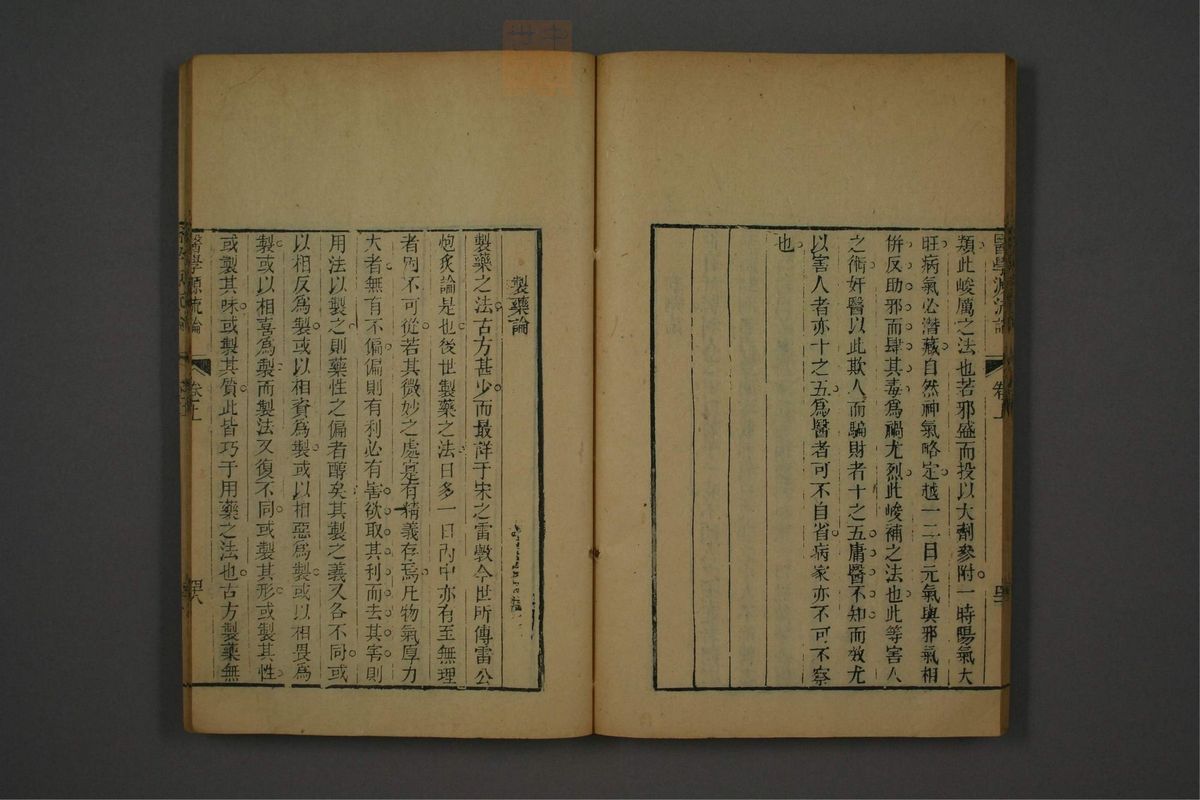 類此峻厲之法也若邪盛而投以大劑參附一時陽氣大
旺病氣必潛藏自然神氣略定越一二日元氣與邪氣相
併反助邪而肆其毒為禍尤烈此峻補之法也此等害人
之術奸醫以此欺人而騙財者十之五庸醫不知而效尤
以害人者亦十之五為醫者可不自省病家亦不可不察
也
製藥論
製藥之法古方甚少而最詳于宋之雷斆今世所傳雷公
炮炙論是也後世製藥之法日多一日內中亦有至無理
者固不可從若其微妙之處寔有精義存焉凡物氣厚力
大者無有不偏偏則有利必有害欲取其利而去其害則
用法以製之則藥性之偏者醇矣其製之義又各不同或
以相反為製或以相資為製或以相惡為製或以相畏為
製或以相喜為製而製法又復不同或製其形或製其性
或製其味或製其質此皆巧于用藥之法也古方製藥無
醫學源流論
卷上